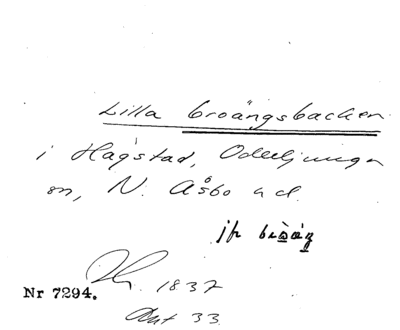 Lilla broängsbacken
i Hagstad, Oderljunga
sn, N. Åsbo hd.
jfr
1837
Nr 7294.
Akt 33